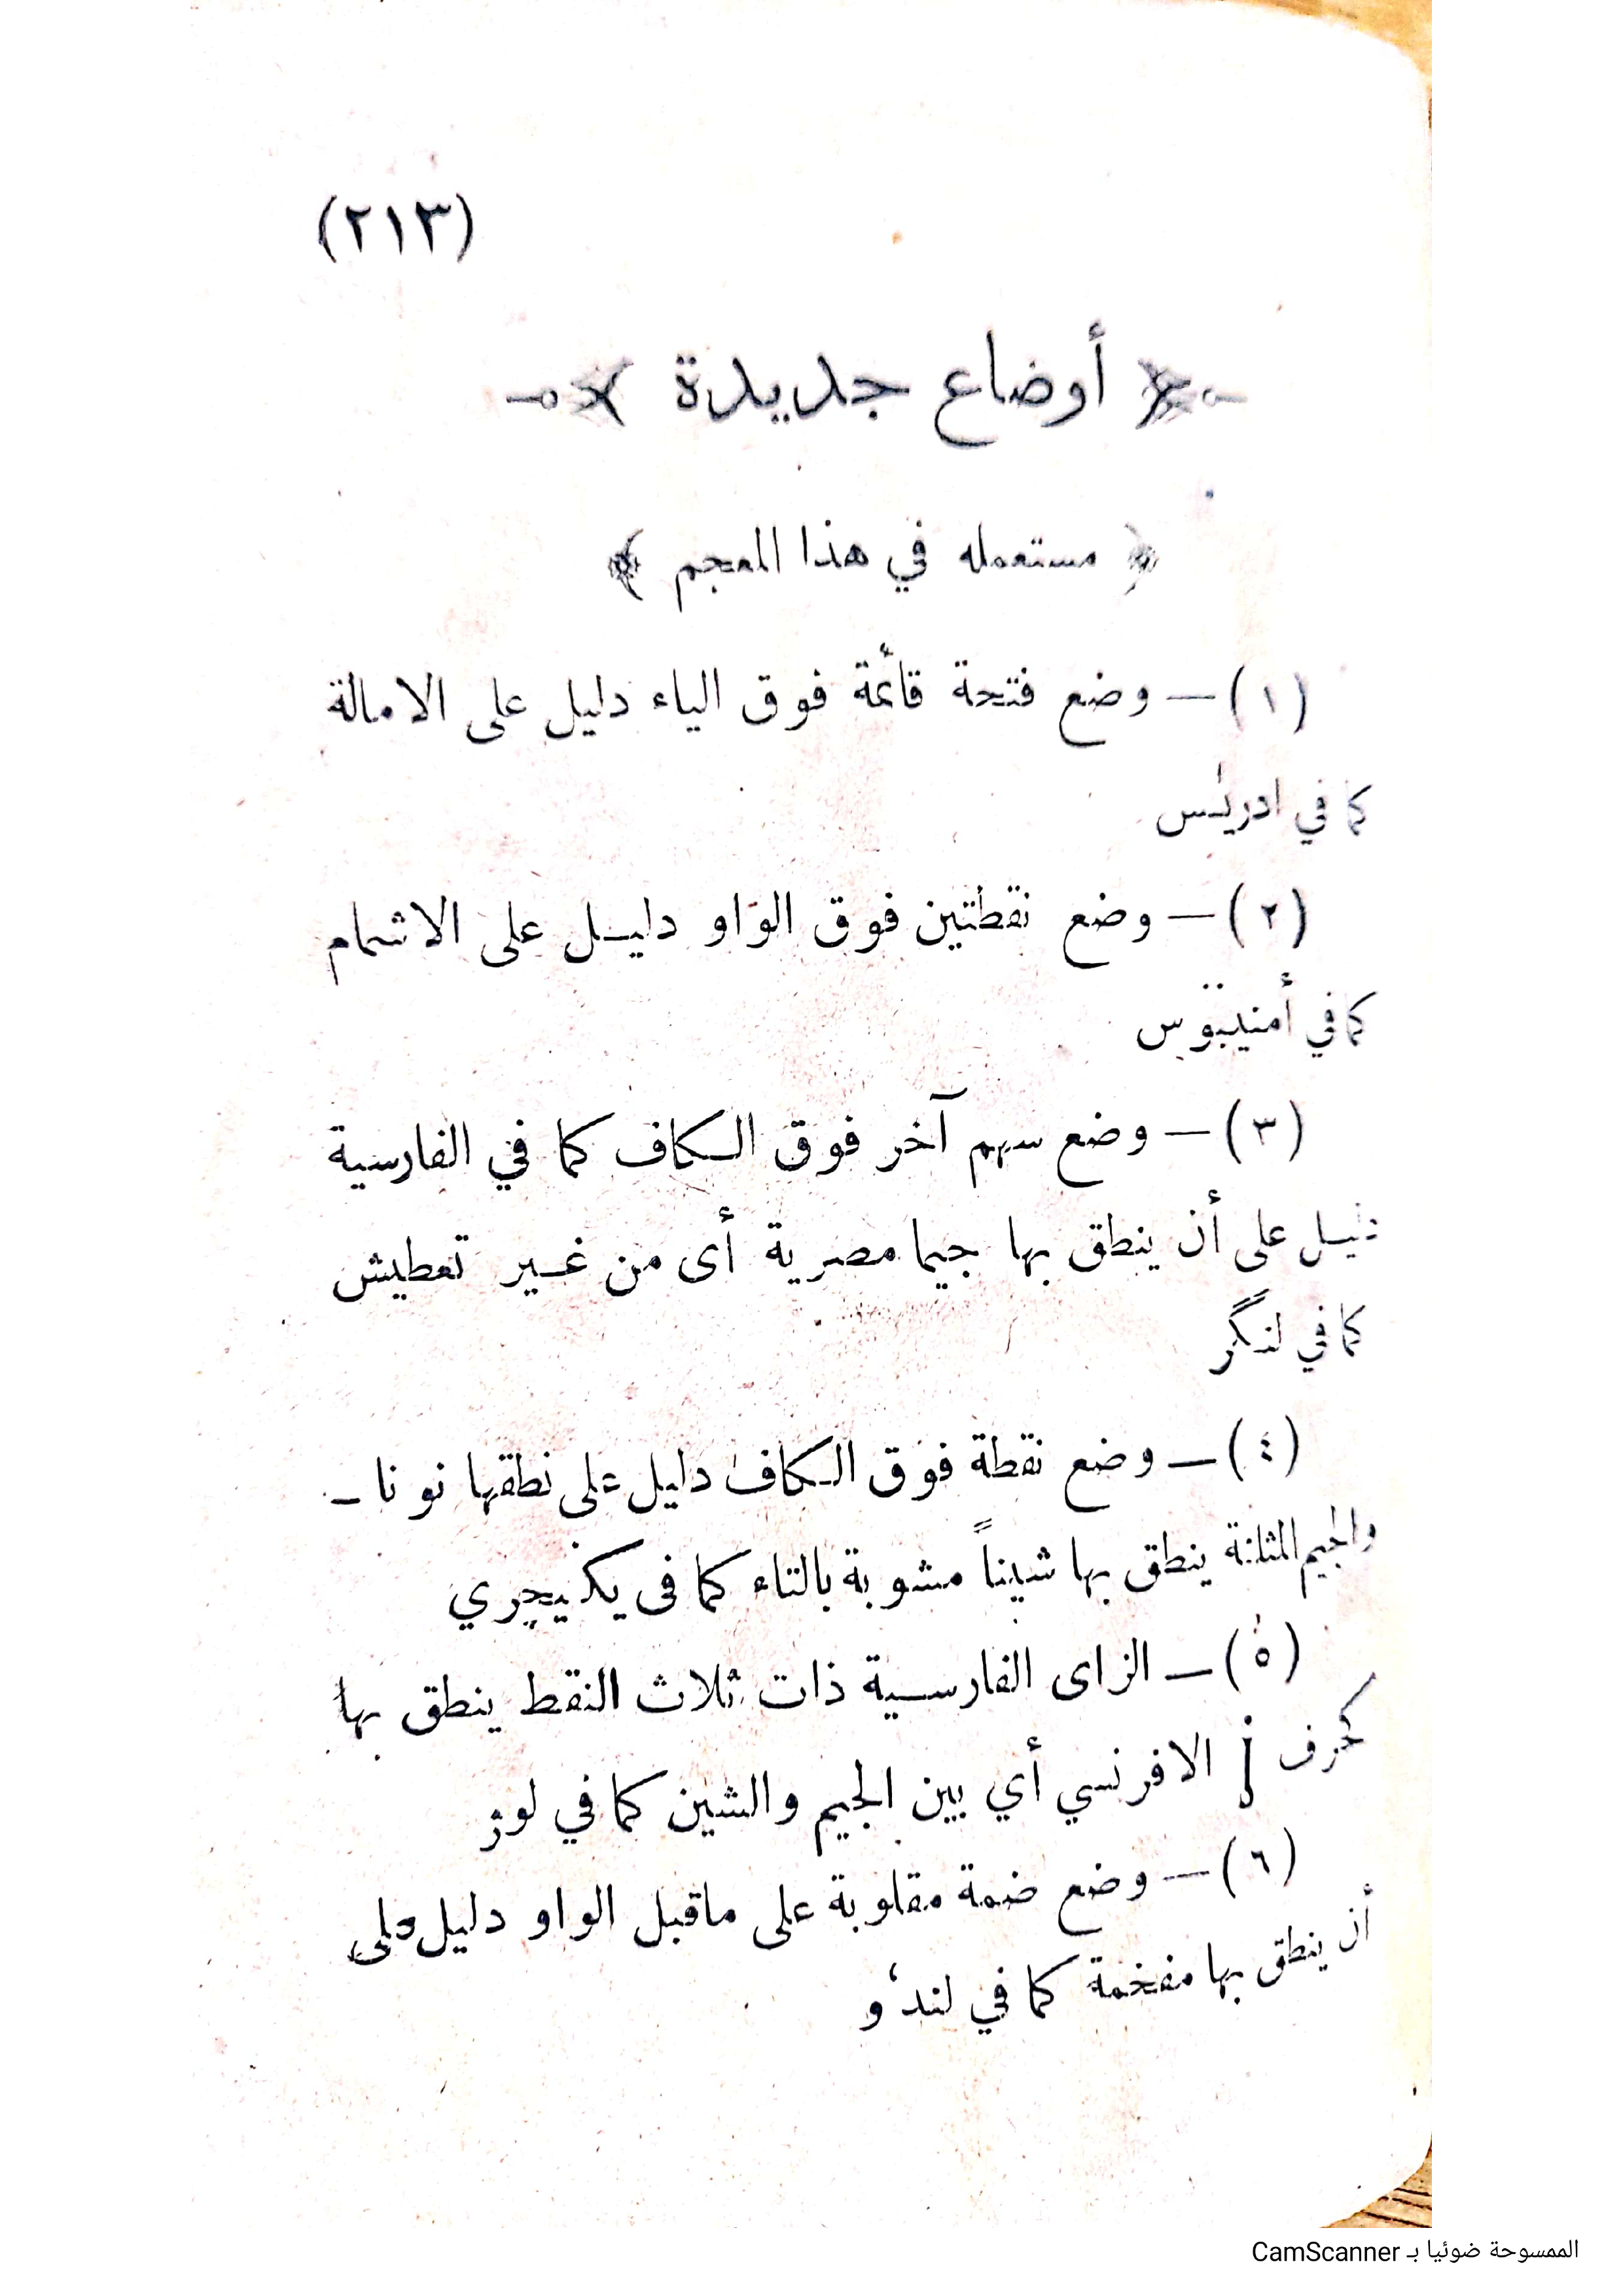 (٢١٣)
أوضاع جديدة
﴿ مستعمله في هذا المعجم ﴾
(١) — وضع فتحة قائمة فوق الياء دليل على الامالة
كما في ادريٰس
(٢) — وضع نقطتين فوق الواو دليل على الاشمام
كما في أمنيبۊس
(٣) — وضع سهم آخر فوق الكاف كما في الفارسية
دليل على أن ينطق بها جيما مصرية أى من غير تعطيش
كما في لنگر
(٤) — وضع نقطة فوق الكاف دليل على نطقها نونا —
والجيم المثلثة ينطق بها شيناً مشوبة بالتاء كما فى يڬيچري
(٥) — الزاى الفارسية ذات ثلاث النقط ينطق بها
كحرف j الافرنسي أي بين الجيم والشين كما في لوژ
(٦) — وضع ضمة مقلوبة على ماقبل الواو دليل على
أن ينطق بها مفخمة كما في لندٗو
الممسوحة ضوئيا بـ CamScanner